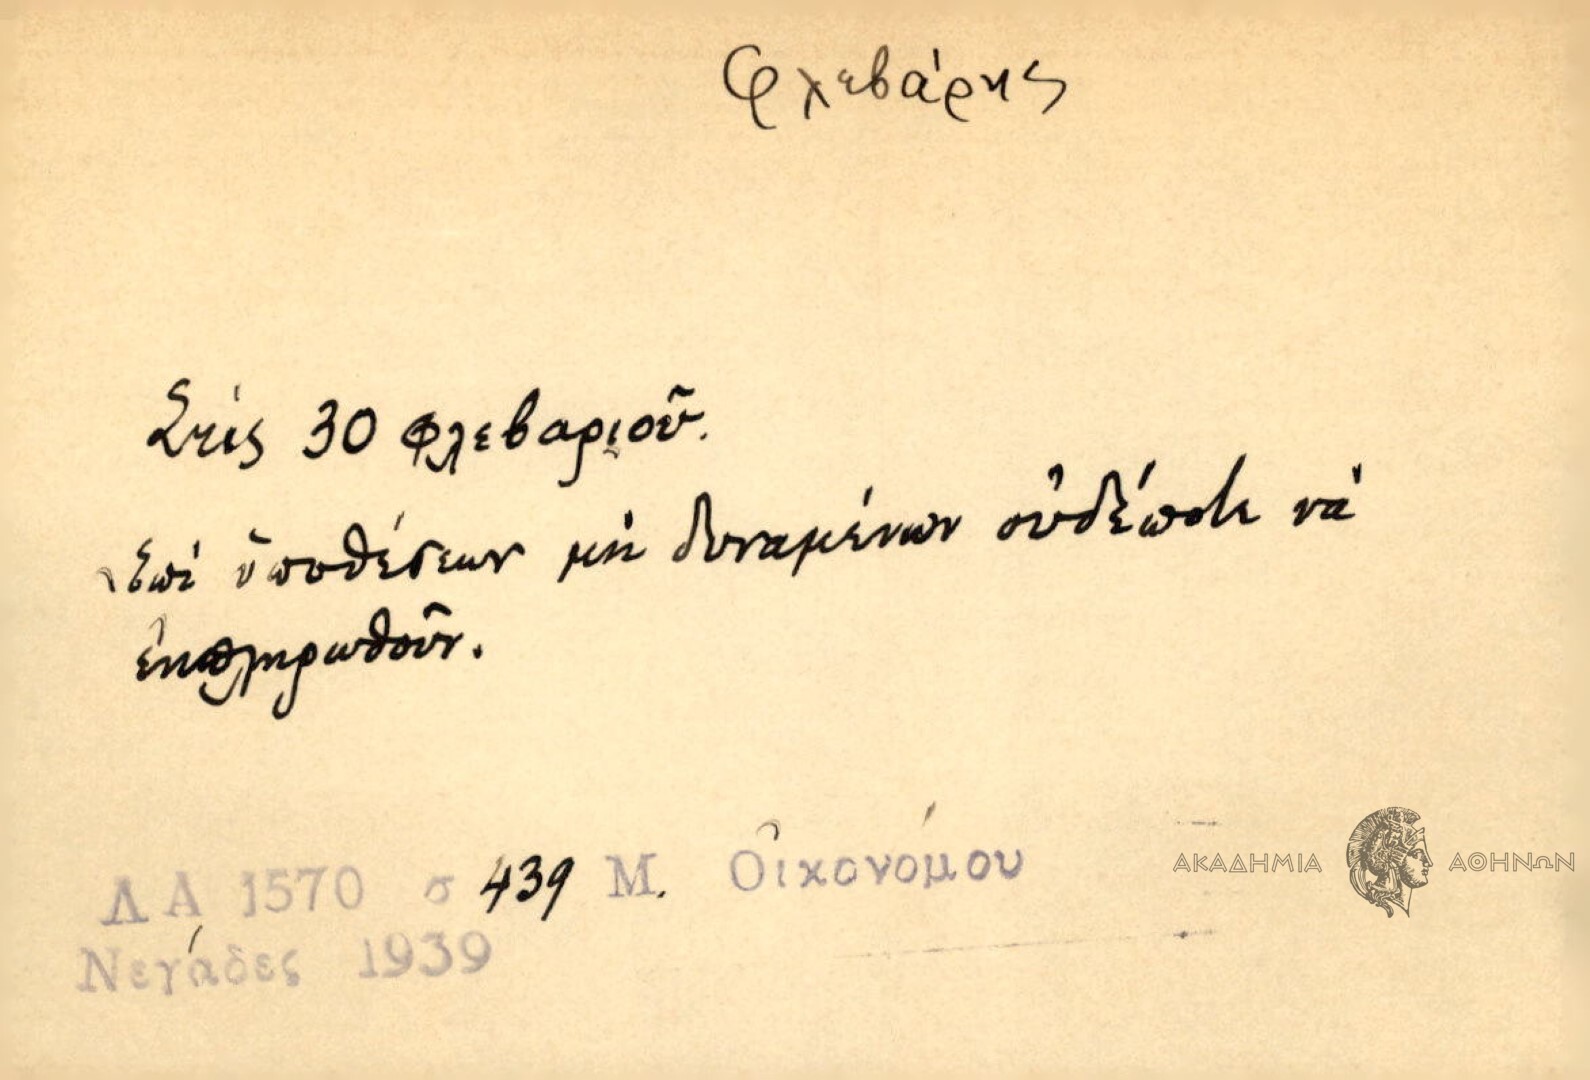 Φλεβάρης
Στὶς 30 Φλεβαριοῦ.
Ἐπὶ ὑποθέσεων μὴ δυναμένων οὐδέποτε νὰ
ἐκπληρωθοῦν.
ΛΑ 1570 σ 439 Μ. Οἰκονόμου
Νεγάδες 1939
ΑΚΑΔΗΜΙΑ ΑΘΗΝΩΝ